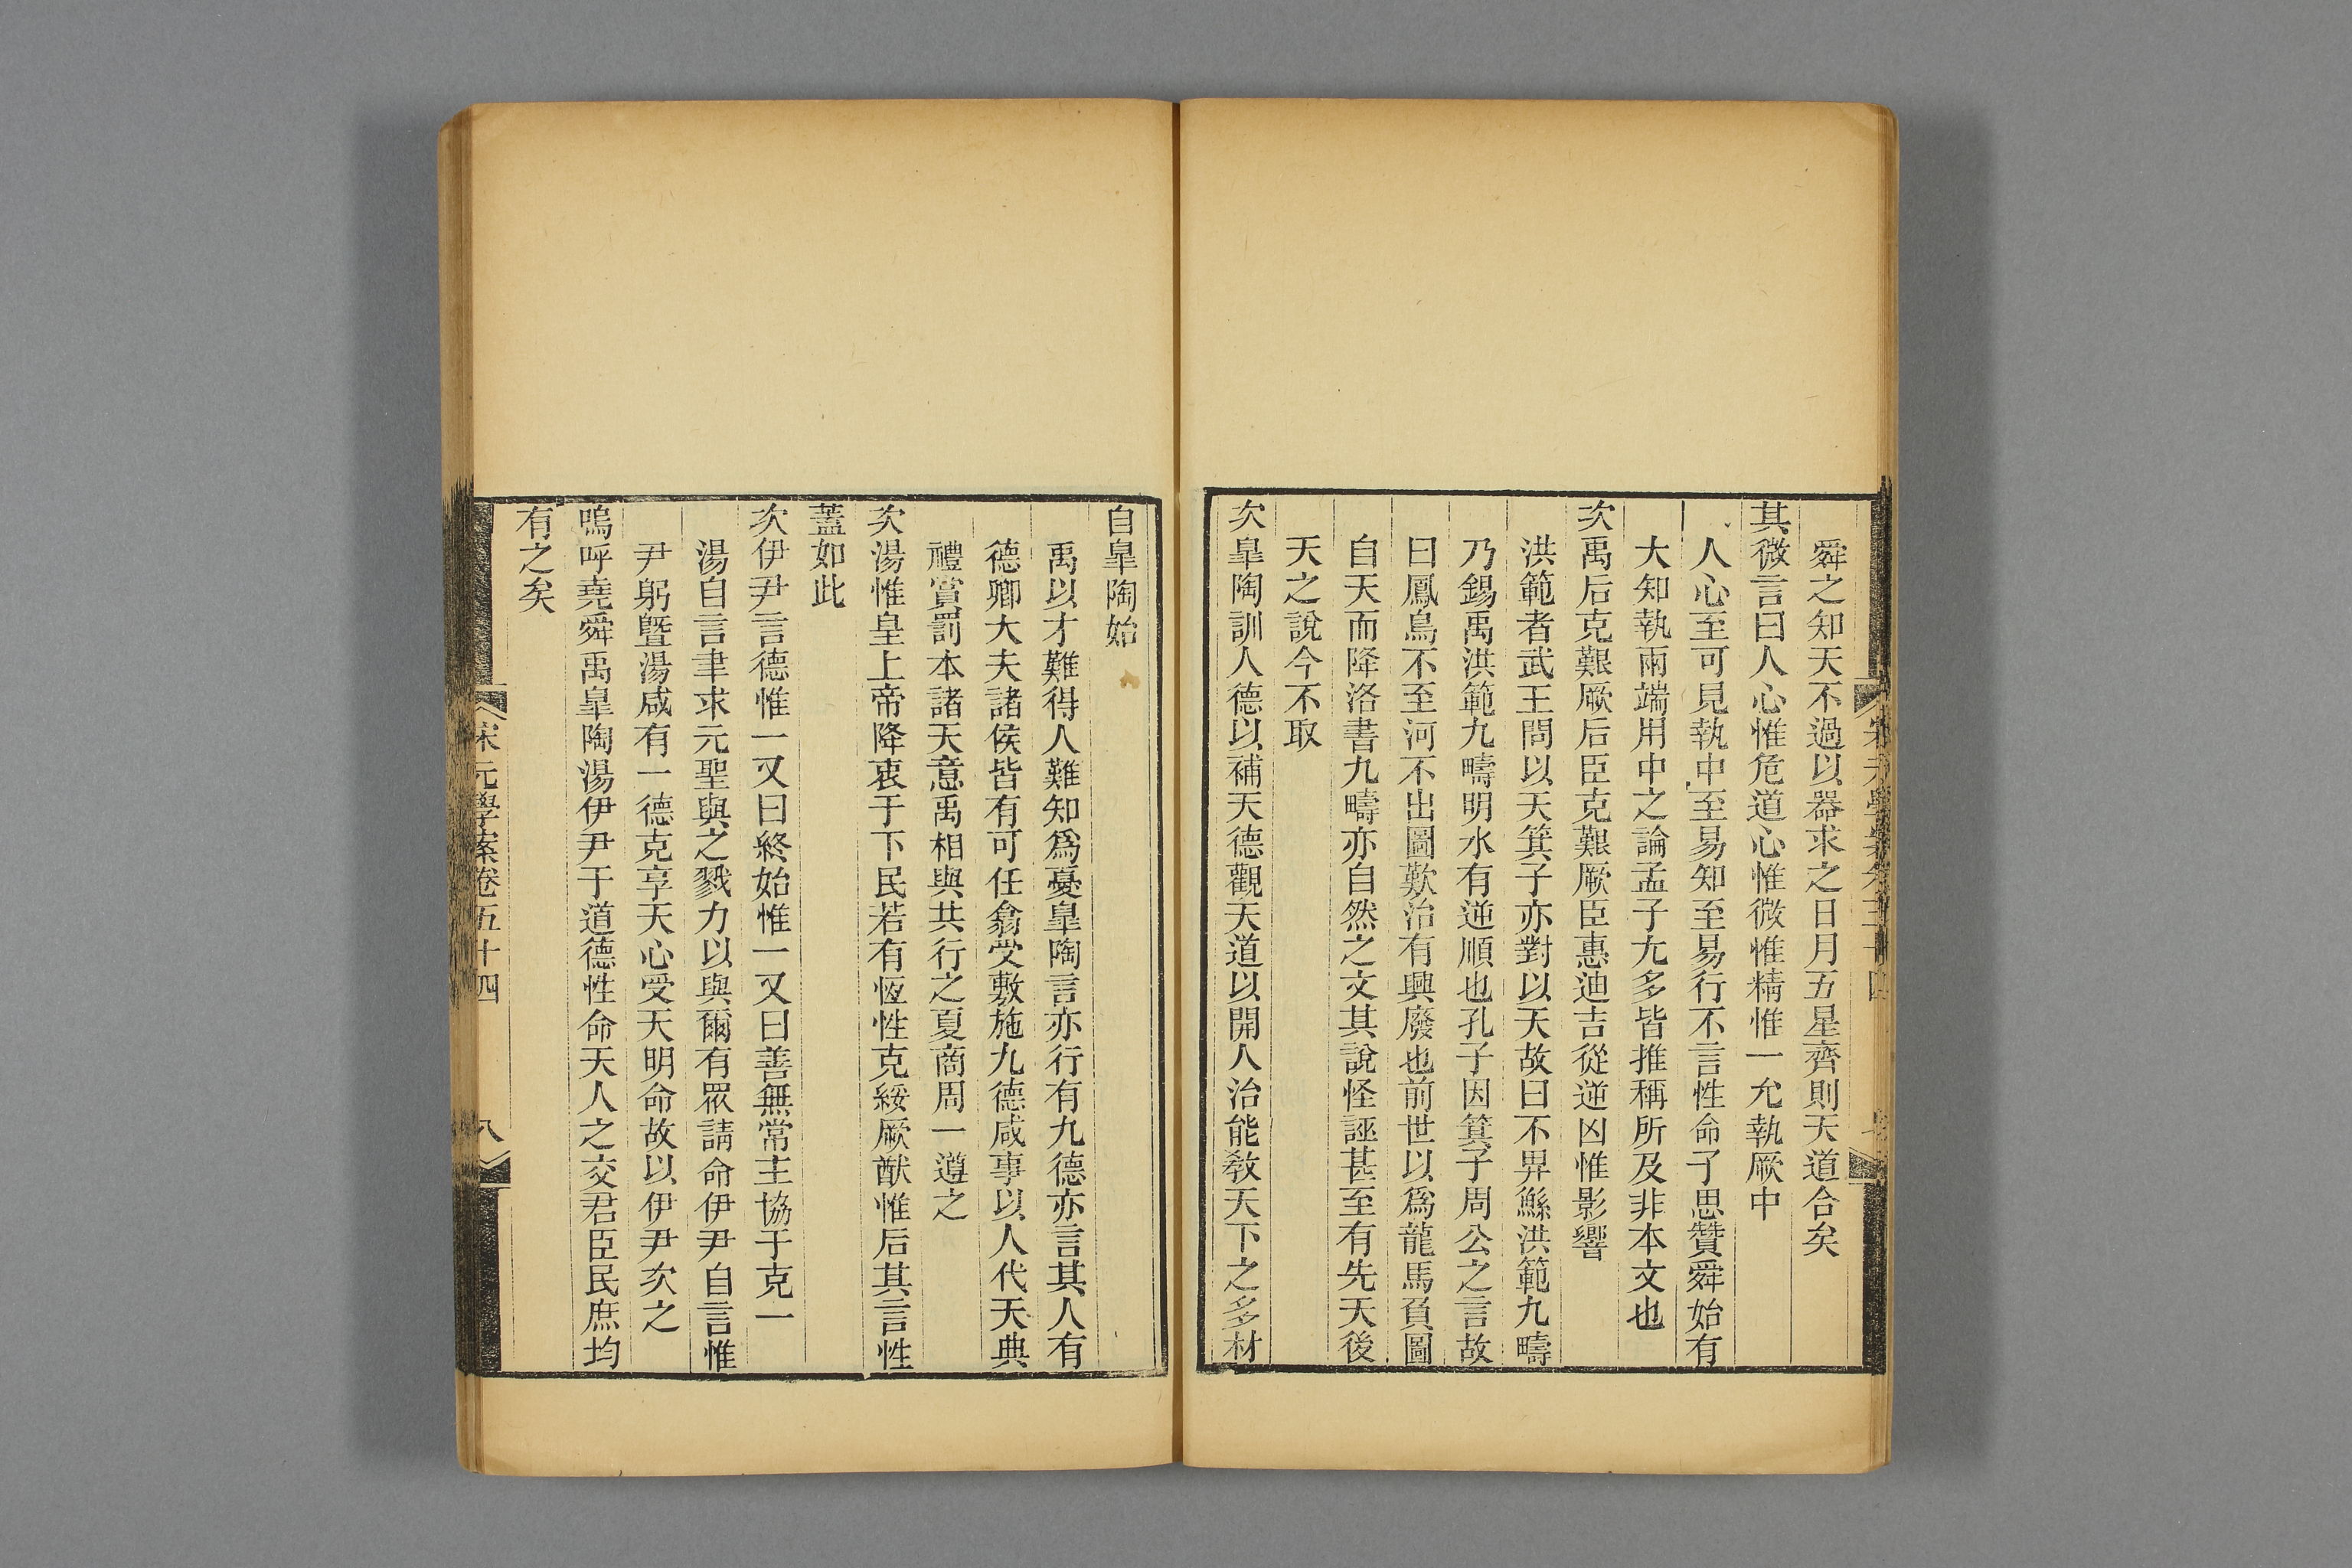 舜之知天不過以器求之日月五星齊則天道合矣
其微言曰人心惟危道心惟微惟精惟一允執厥中
人心至可見執中至易知至易行不言性命子思贊舜始有
大知執兩端用中之論孟子尤多皆推稱所及非本文也
次禹后克艱厥后臣克艱厥臣惠迪吉從逆凶惟影響
洪範者武王問以天箕子亦對以天故曰不畀鯀洪範九疇
乃錫禹洪範九疇明水有逆順也孔子因箕子周公之言故
曰鳳鳥不至河不出圖歎治有興廢也前世以爲龍馬負圖
自天而降洛書九疇亦自然之文其說怪誣甚至有先天後
天之說今不取
次臯陶訓人德以補天德觀天道以開人治能敎天下之多材
自臯陶始
禹以才難得人難知爲憂臯陶言亦行有九德亦言其人有
德卿大夫諸侯皆有可任翕受敷施九德咸事以人代天典
禮賞罰本諸天意禹相與共行之夏商周一遵之
次湯惟皇上帝降衷于下民若有恆性克綏厥猷惟后其言性
蓋如此
次伊尹言德惟一又曰終始惟一又曰善無常主協于克一
湯自言聿求元聖與之戮力以與爾有眾請命伊尹自言惟
尹躬曁湯咸有一德克享天心受天明命故以伊尹次之
嗚呼堯舜禹臯陶湯伊尹于道德性命天人之交君臣民庶均
有之矣
宋元學案卷五十四
八